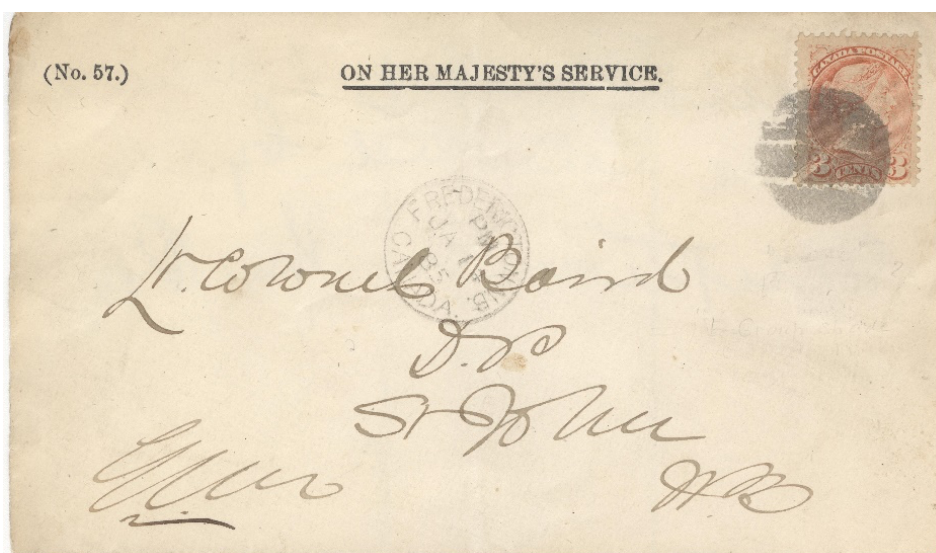 (No. 57.)
ON HER MAJESTY'S SERVICE.
CANADA POSTAGE
3 CENTS 3
FREDERICTON N.B.
PM
JA 14
85
CANADA.
Lt. Colonel Baird
D.P
St John
N.B